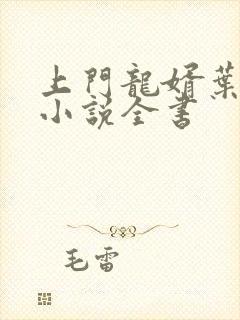 上門龍婿葉
小說全書
毛雷